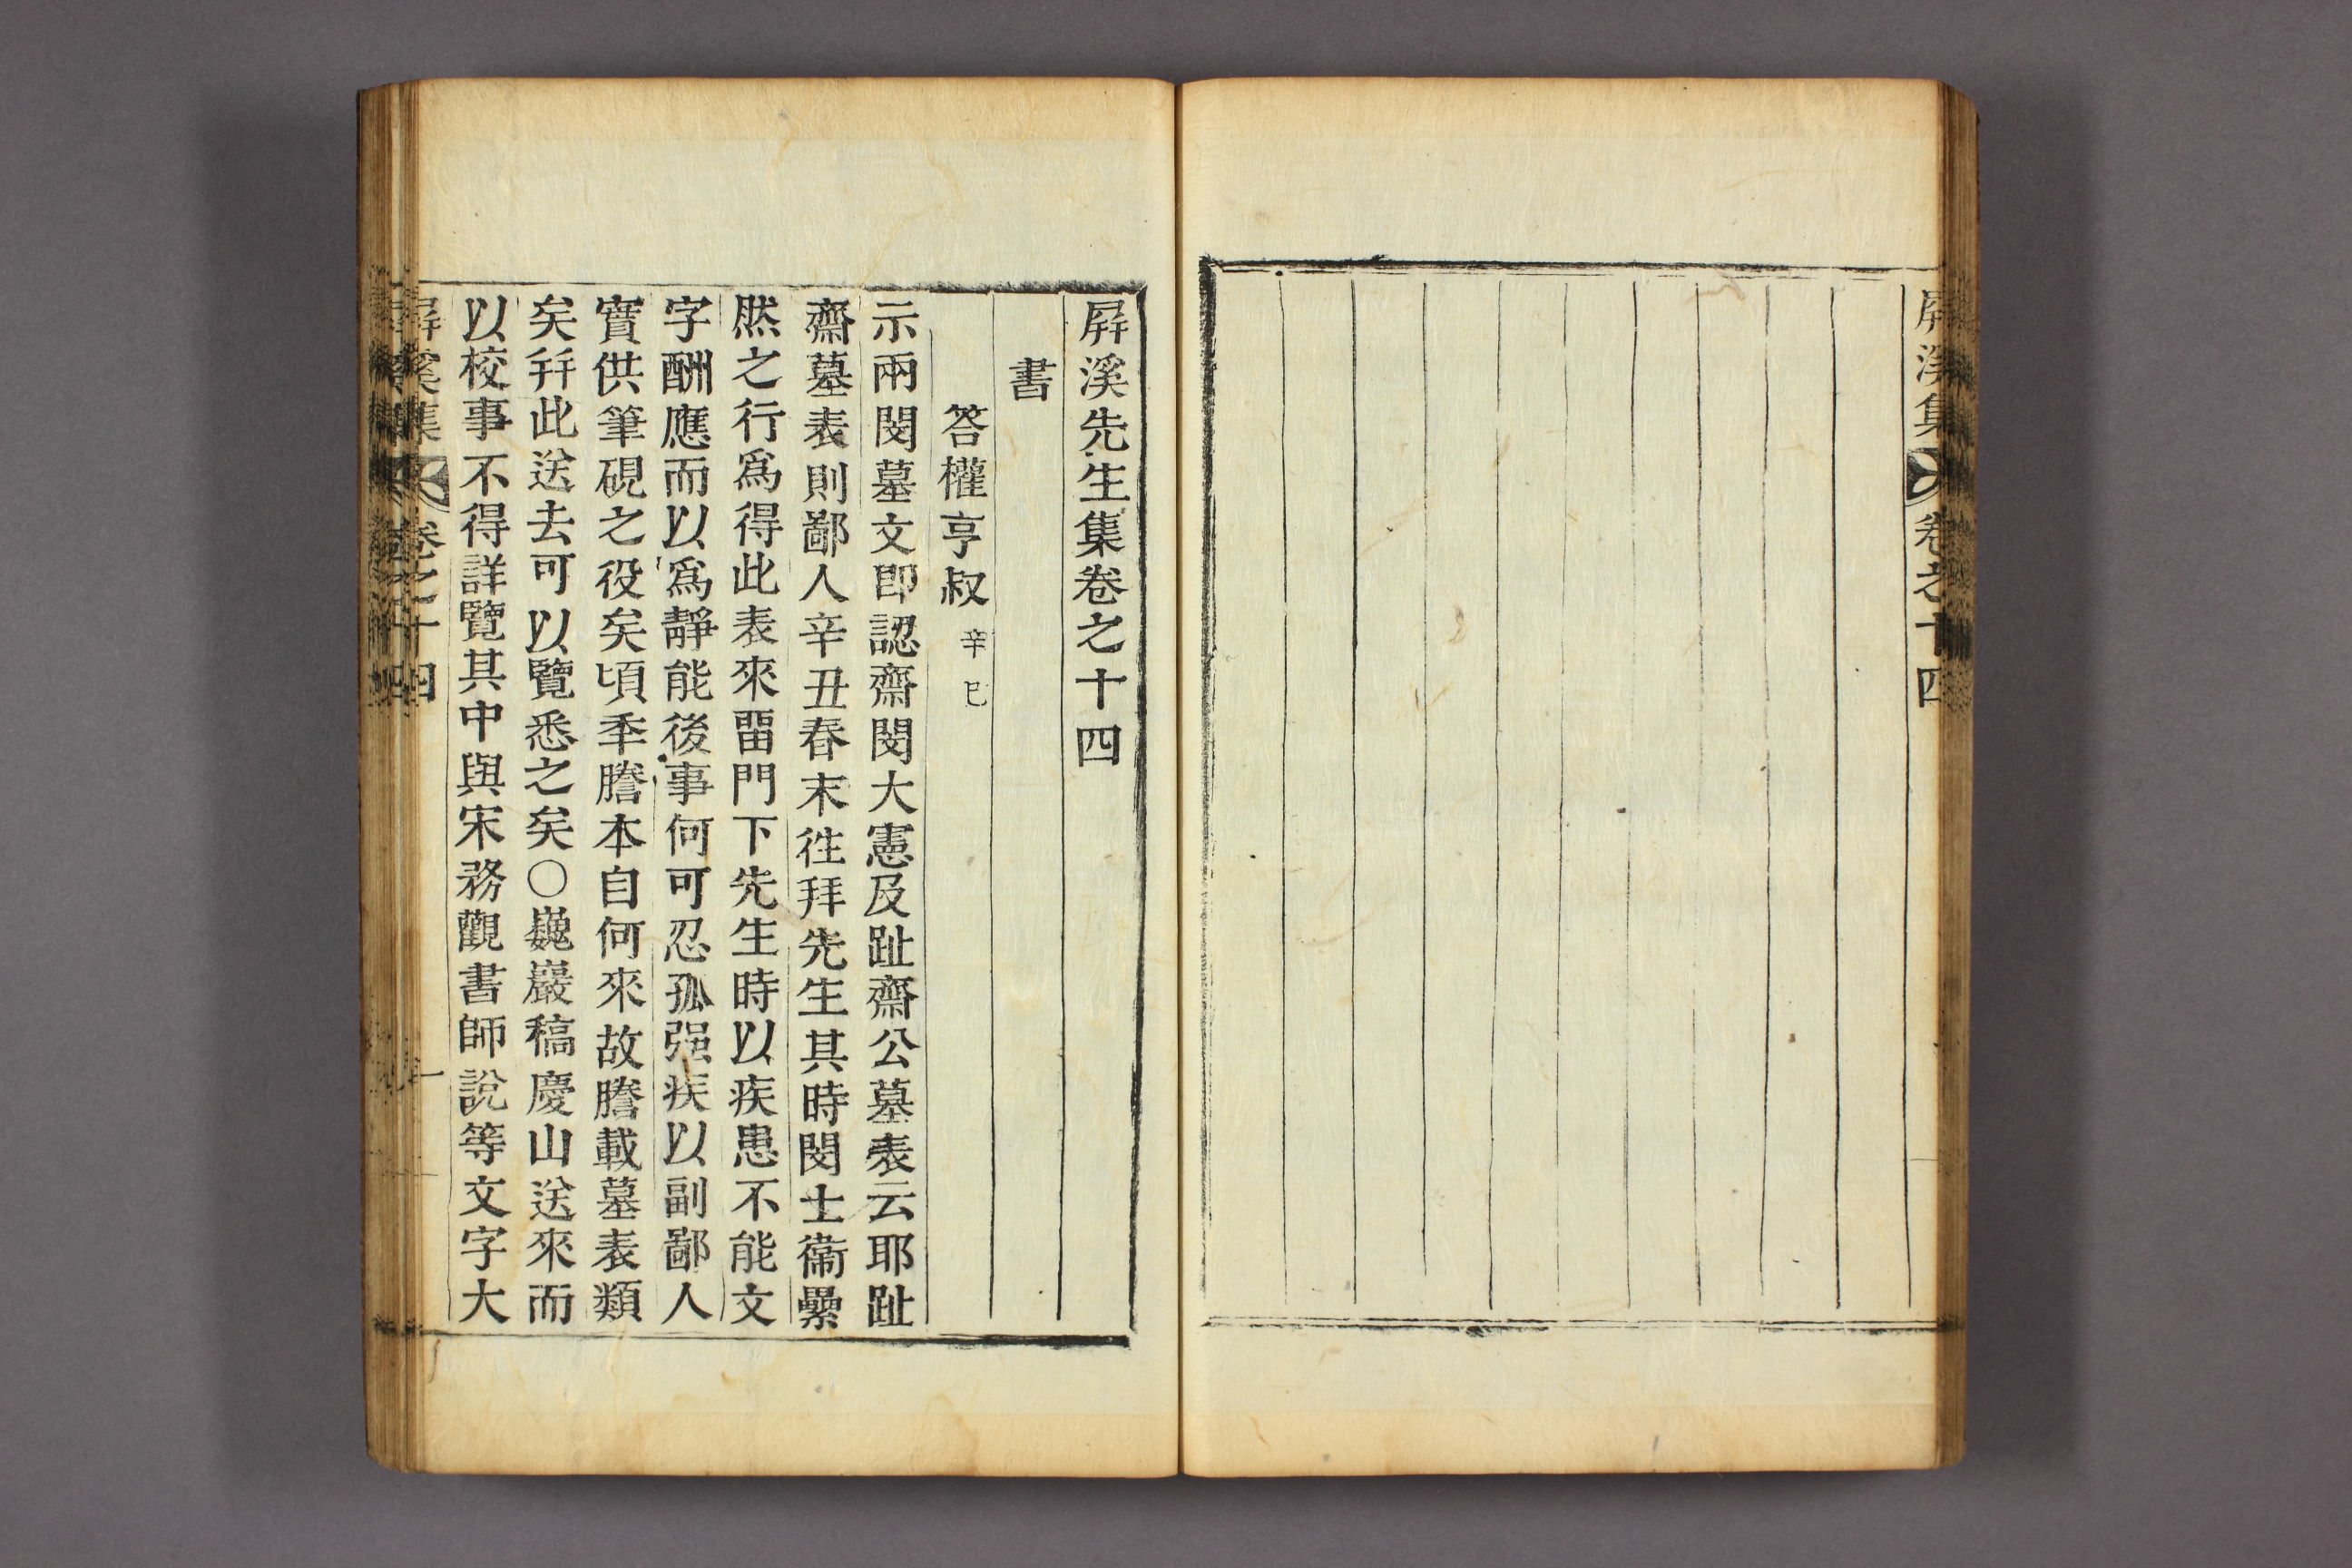 屛溪集 卷之十四
屛溪先生集卷之十四
書
答權亨叔 辛巳
示兩閔墓文卽認齋閔大憲及趾齋公墓表云耶趾
齋墓表則鄙人辛丑春末徃拜先生其時閔士衞纍
然之行爲得此表來畱門下先生時以疾患不能文
字酬應而以爲靜能後事何可忍孤强疾以副鄙人
實供筆硯之役矣頃年謄本自何來故謄載墓表類
矣幷此送去可以覽悉之矣○巍巖稿慶山送來而
以校事不得詳覽其中與宋務觀書師說等文字大
屛溪集 卷之十四 一